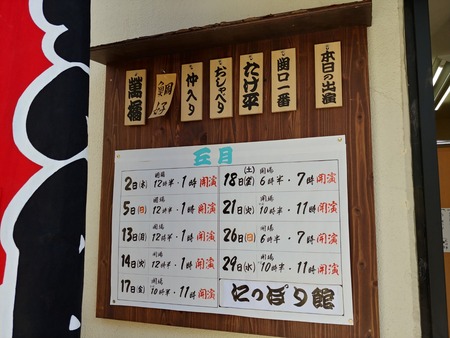 本日の出演
関口一番
たけ平
おしゃべり
仲入り
萬橘
三月
2日(木) 開場12時半・1時開演
5日(日) 開場12時半・1時開演
13日(月) 開場12時半・1時開演
14日(火) 開場12時半・1時開演
17日(金) 開場10時半・11時開演
18日(土) 開場6時半・7時開演
21日(火) 開場10時半・11時開演
26日(日) 開場6時半・7時開演
29日(水) 開場10時半・11時開演
にっぽり館